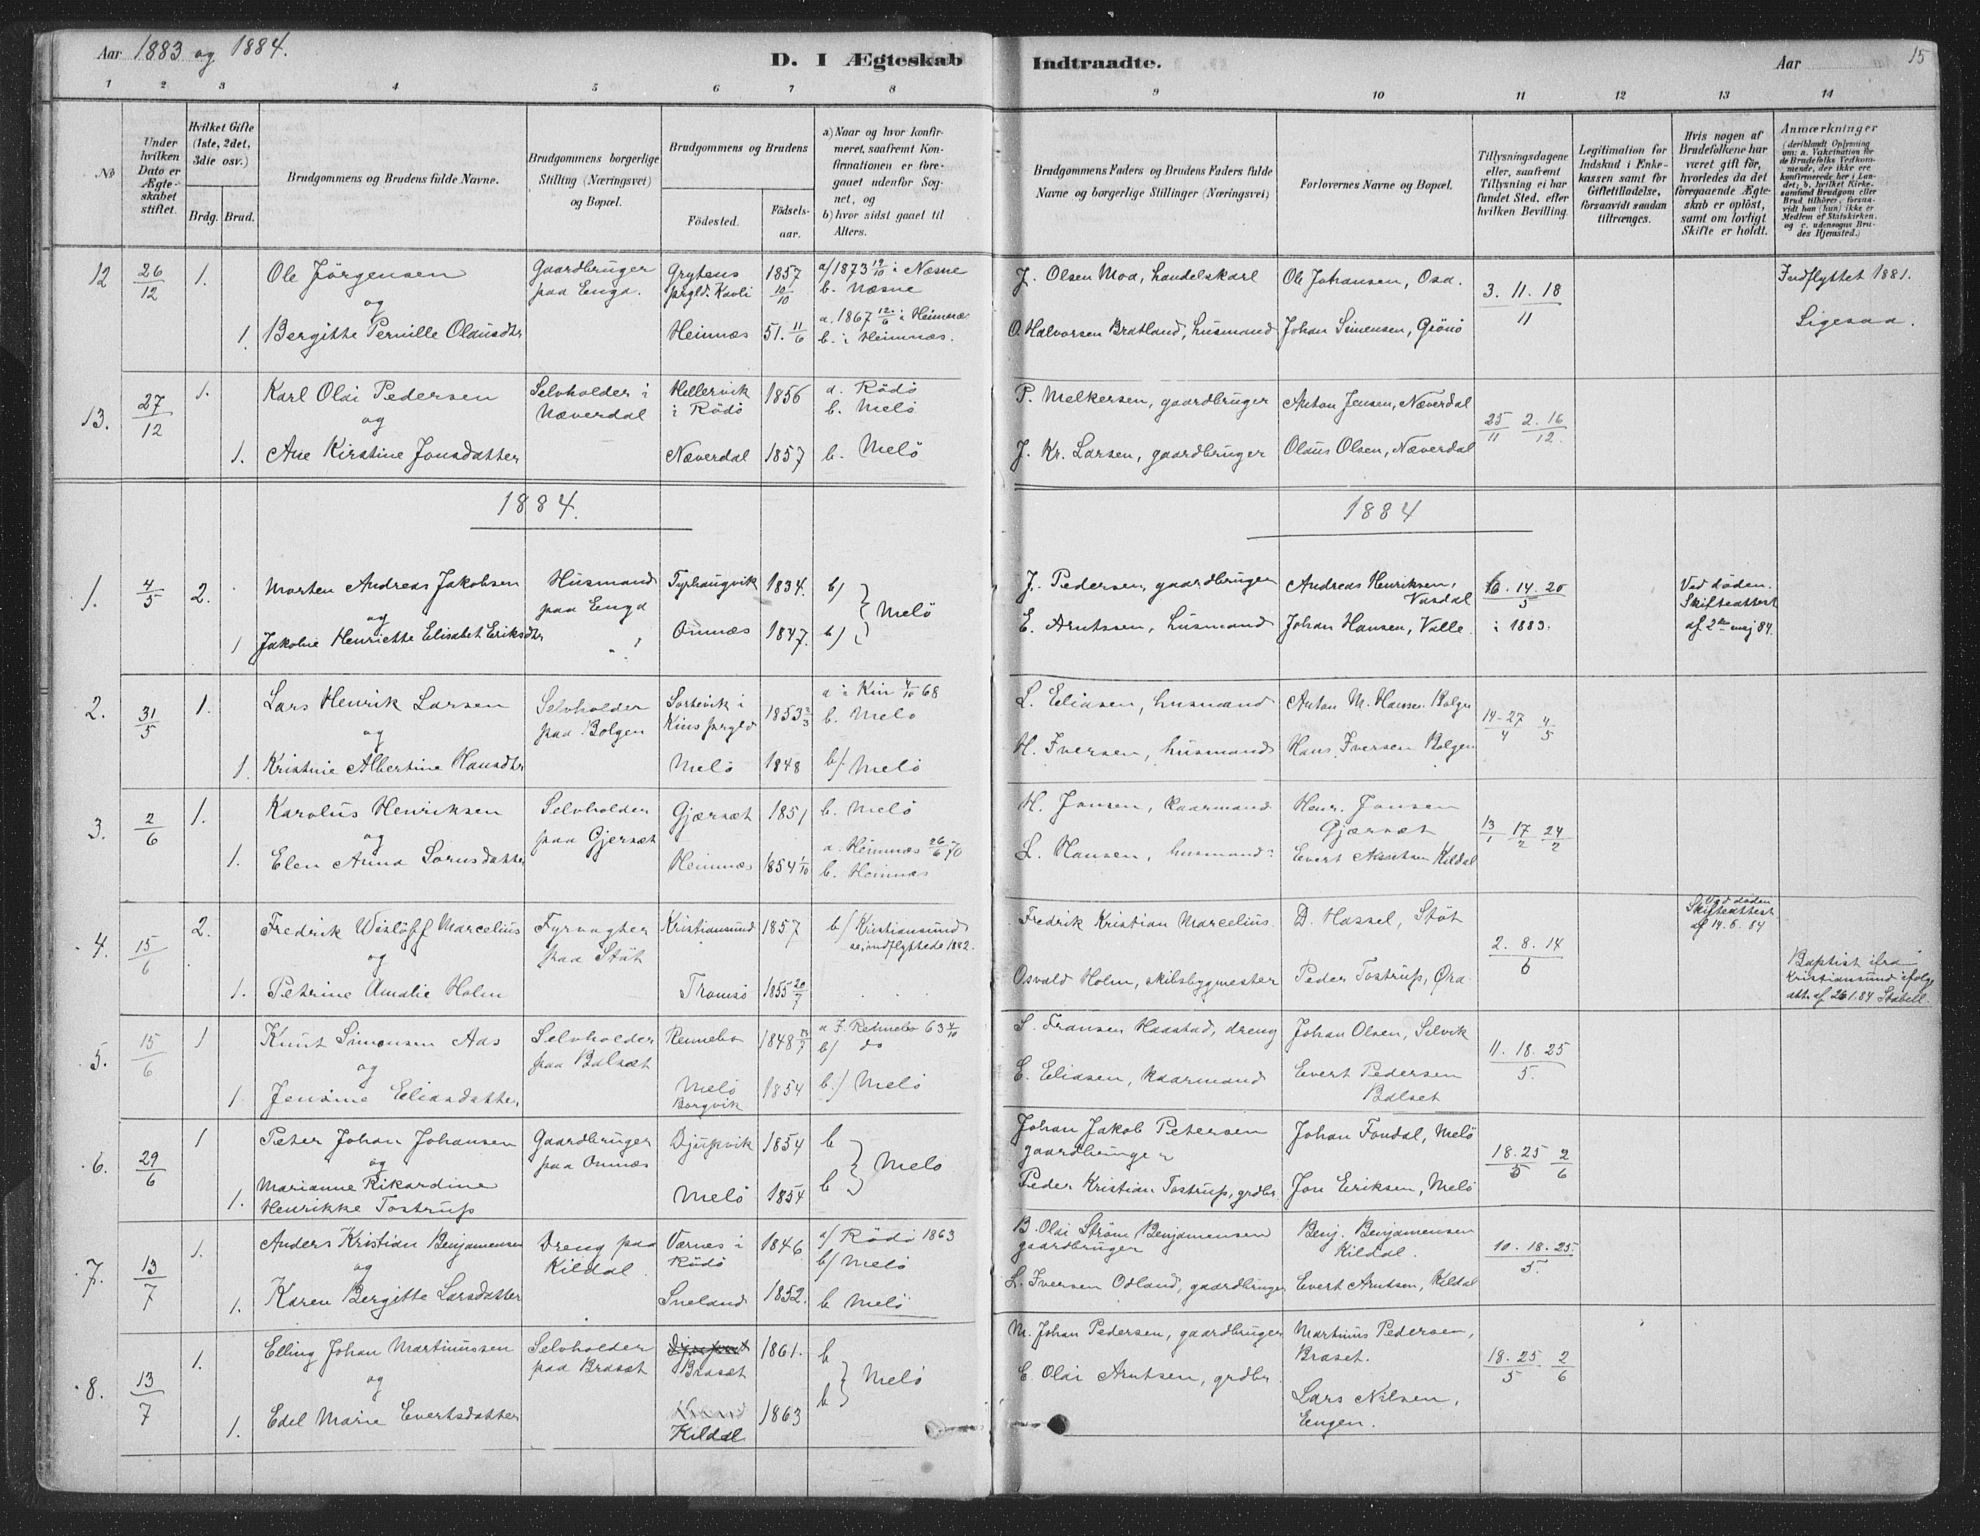 Aar 1883 og 1884.
D. I Ægteskab Indtraadte.
Aar 15
1 2 3 4 5 6 7 8 9 10 11 12 13 14
No
Under hvilken Dato er Ægteskabet stiftet.
Hvilket Gifte (1ste, 2det, 3die osv.)
Brdg. Brud.
Brudgommens og Brudens fulde Navne.
Brudgommens borgerlige Stilling (Næringsvei) og Bopæl.
Brudgommens og Brudens
Födested. Födselsaar.
a) Naar og hvor konfirmeret, saafremt Konfirmationen er foregaaet udenfor Sognet, og
b) hvor sidst gaaet til Alters.
Brudgommens Faders og Brudens Faders fulde Navne og borgerlige Stillinger (Næringsvei)
Forlovernes Navne og Bopæl.
Tillysningsdagene eller, saafremt Tillysning ei har fundet Sted, efter hvilken Bevilling.
Legitimation for Indskud i Enkekassen samt for Giftetilladelse, forsaavidt saadan tiltrænges.
Hvis nogen af Brudefolkene har været gift för, hvorledes da det foregaaende Ægteskab er oplöst, samt om lovligt Skifte er holdt.
Anmærkninger
(deriblandt Oplysning om: a. Vakcination for de Brudefolks Vedkommende, der ikke ere konfirmerede her i Landet; b. hvilket Kirkesamfund Brudgom eller Brud tilhörer, forsaavidt han (hun) ikke er Medlem af Statskirken, og c. udensogns Brudes Hjemsted.)
12 26/12 1. Ole Jörgensen Gaardbruger paa Enga. Grytens prgld. Kavli 1857 10/10 a/1873 19/10 i Næsne b. Næsne J. Olsen Moa, handelskarl Ole Johansen, Osa. 3. 11. 18 / 11 Indflyttet 1881.
og
1. Bergitte Pernille Olausdtr Heimnæs 51. 11/6 a. 1867 12/6 i Heimnæs b. i Heimnæs. O. Halvorsen Bratland, husmand Johan Simensen, Grönö Ligesaa.
13. 27/12 1. Karl Oldi Pedersen Selvholder i Næverdal Hellervik i Rödö 1856 a. Rödö b. Melö P. Melkersen, gaardbruger Anton Jensen, Næverdal 25/11 2. 16/12.
og
1. Ane Kirstine Jonsdatter Næverdal 1857 b. Melö J. Kr. Larsen, gaardbruger Olaus Olsen, Næverdal
1884. 1884
1. 4/5 2. Morten Andreas Jakobsen Husmand paa Enga Tyrhaugvik 1834. b/ Melö J. Pedersen, gaardbruger Andreas Henriksen, Vasdal 6. 14. 20 / 5 i 1883. Ved döden. Skifteattest af 2den maj 84.
og
1 Jakobine Henriette Elisabet Eriksdtr Onnæs 1847. b/ E. Arntssen, husmand Johan Hansen, Valle.
2. 31/5 1. Lars Henrik Larsen Selvholder paa Bolgen Sortevik i Kins prgld 1853 3/3 a i Kin 4/10 68 b. Melö L. Eliasen, husmand Anton M. Hansen Bolgen 14-27/4 4/5
og
1. Kristine Albertine Hansdtr Melö 1848 b/ Melö H. Iversen, husmand Hans Iversen Bolgen
3. 2/6 1. Karolus Henriksen Selvholder paa Gjersæt Gjærsæt 1851 b. Melö H. Jonsen, kaarmand Henr. Jonsen Gjærsæt 13/1 17/2 24/2
og
1. Elen Anna Lornsdatter Heimnæs 1854 1/10 a. Heimnæs 26/6 70 b. Heimnæs L. Hansen, husmand Evert Arntsen Kildal
4. 15/6 2. Fredrik Wislöff Marcelius Fyrvogter paa Stöt Kristiansund 1857 b/ Kristiansund indflyttede 1882. Fredrik Kristian Marcelius. D. Hassel, Stöt 2. 8. 14 / 6 Ved döden Skifteattest af 14.6.84
og
1. Petrine Amalie Holm Tromsö 1855 20/7 Osvald Holm, skibsbygmester Peder Tostrup, Öra Baptist ifra Kristiansund ifölge att. af 26 1.84 Stabell.
5. 15/6 1 Knut Simonsen Aas Selvholder paa Balsæt Rennebo 1848 a. I. Rennebo 63 4/10 b/ do S. Fransen Haastad, dreng Johan Olsen, Selvik 11. 18. 25 / 5.
og
1 Jensine Eliasdatter Melö Borgvik 1854 b./ Melö E. Eliasen, kaarmand Evert Pedersen Balset
6. 29/6 1 Peter Johan Johansen Gaardbruger paa Onnæs Djupvik 1854 b Melö Johan Jakob Petersen gaardbruger Johan Fondal, Melö 18. 25/5 2/6
og
1. Marianne Rikardine Henrikke Tostrup Melö 1854 b Peder Kristian Tostrup, grdbr. Jon Eriksen, Melö
7. 13/7 1. Anders Kristian Benjamensen Dreng paa Kildal Værnes i Rödö 1846 a/ Rödö 1863 b/ Melö B. Oldi Ström Benjamensen gaardbruger Benj. Benjamensen Kildal. 10. 18. 25. / 5.
og
1. Karen Bergitte Larsdatter Sneland 1852. b Melö L. Iversen Odland, gaardbruger Evert Arntsen, Kildal
8. 13/7 1. Elling Johan Martinussen Selvholder paa Braset Braset 1861. b Melö M. Johan Pedersen, gaardbruger Martinus Pedersen, Braset. 18. 25/5 2/6
og
1 Edel Marie Evertsdatter Kildal 1863 b E. Oldi Arntsen, grdbr. Lars Nilsen, Engen.